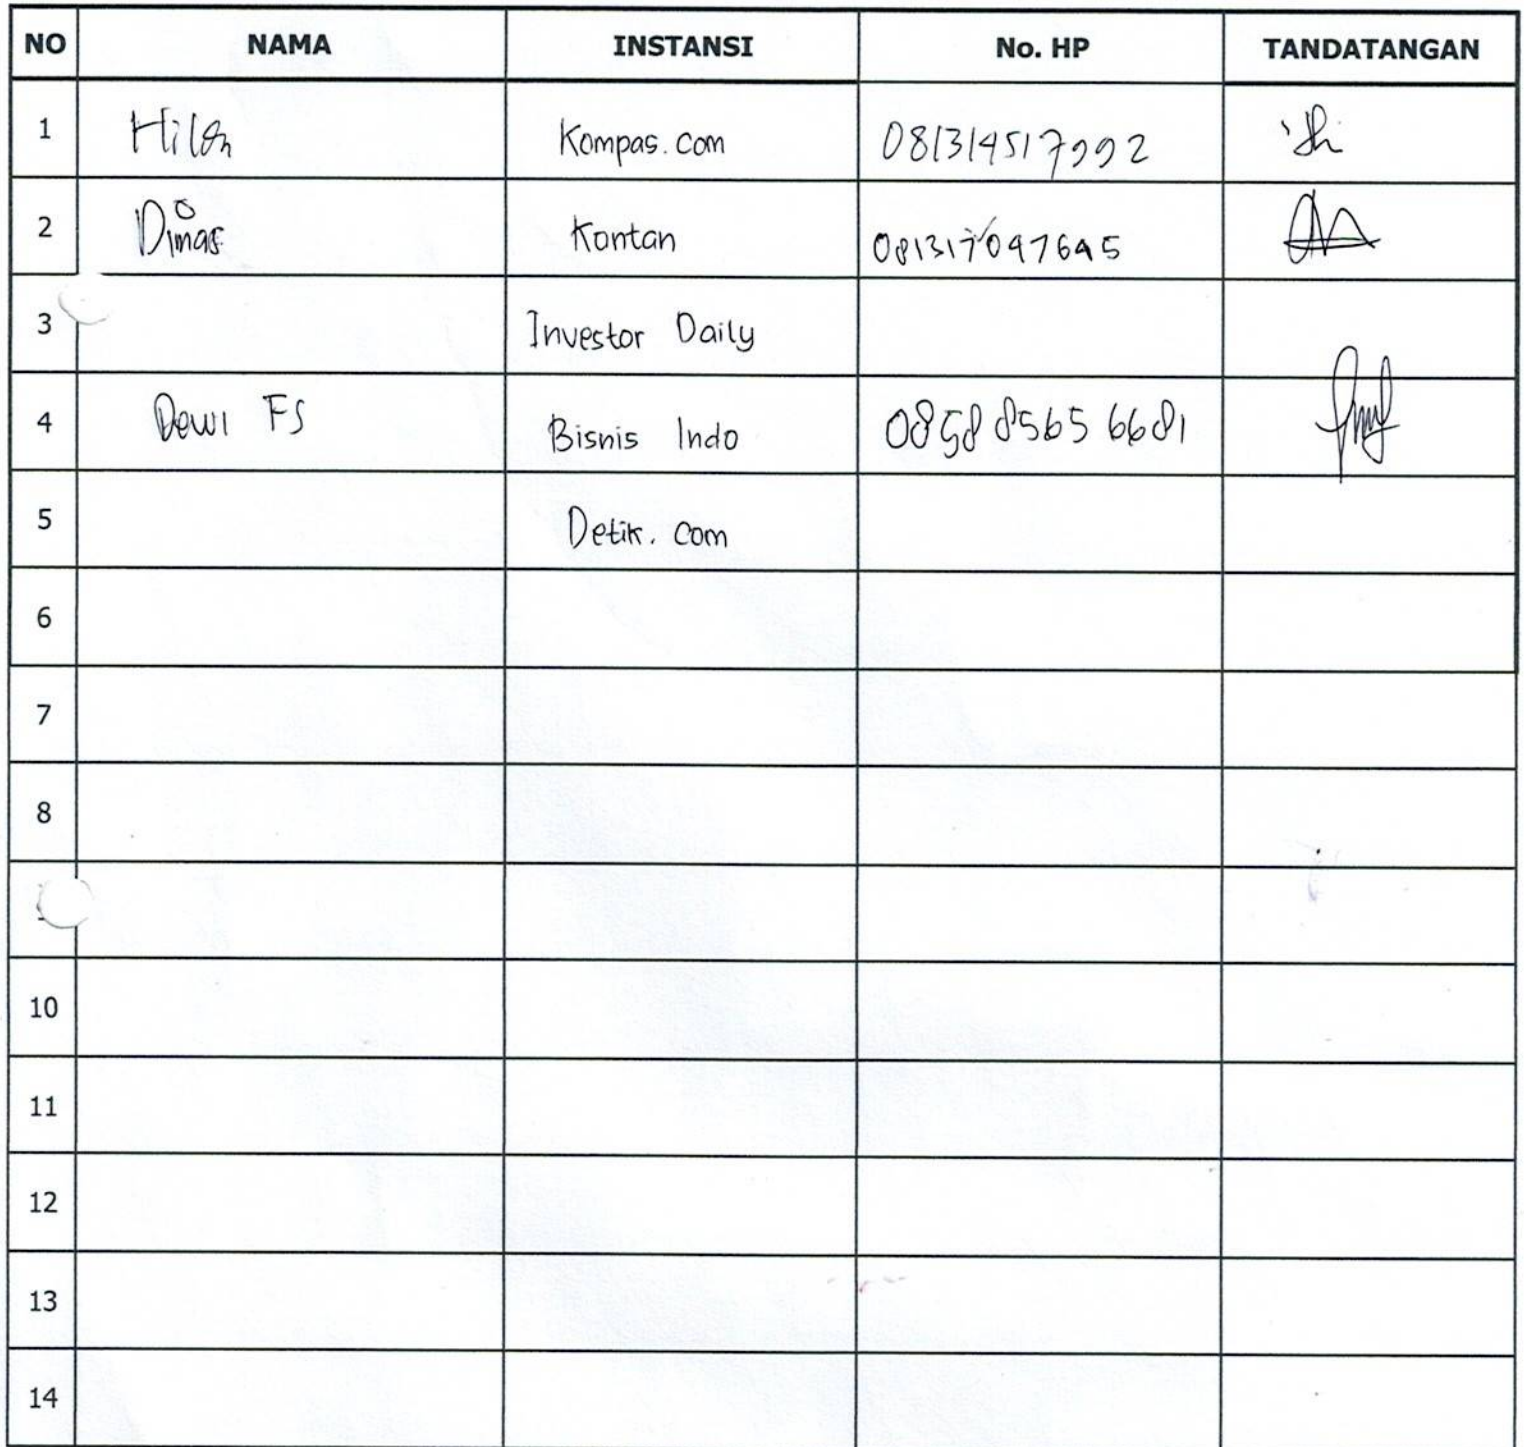 NO NAMA INSTANSI No. HP TANDATANGAN
1 Hilda Kompas.com 081314517992
2 Dimas Kontan 081317097695
3 Investor Daily
4 Dewi FS Bisnis Indo 0858 8565 6681
5 Detik.com
6
7
8
10
11
12
13
14